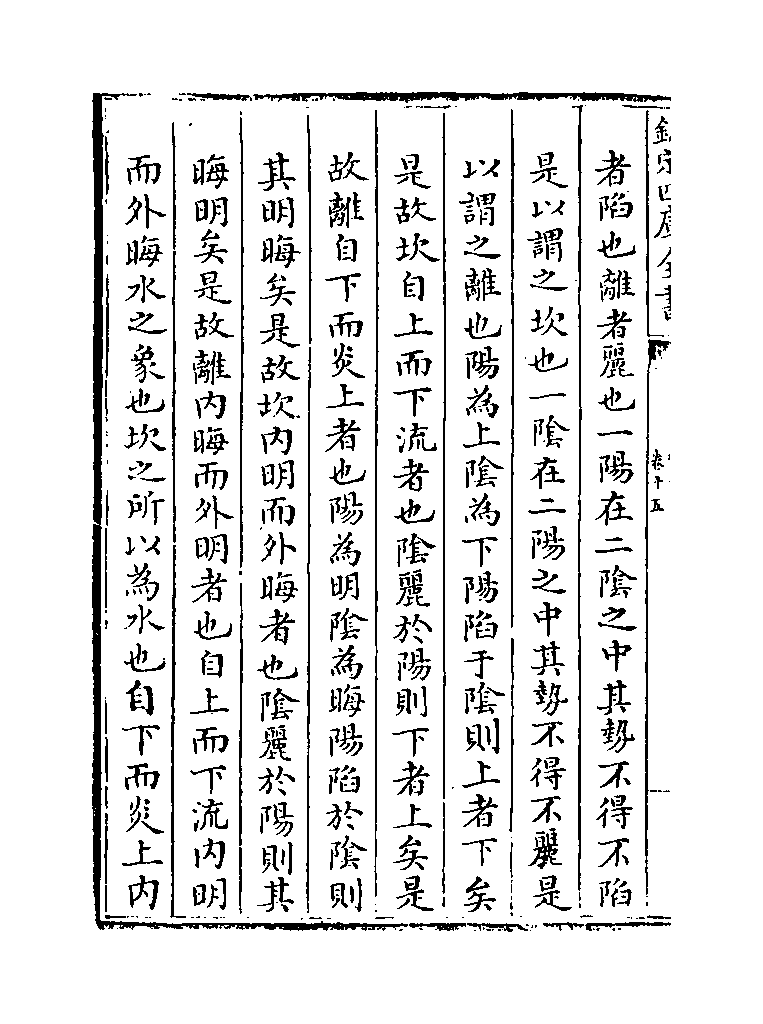 欽定四庫全書
卷十五
者陷也離者麗也一陽在二陰之中其勢不得不陷
是以謂之坎也一陰在二陽之中其勢不得不麗是
以謂之離也陽為上陰為下陽陷于陰則上者下矣
是故坎自上而下流者也陰麗於陽則下者上矣是
故離自下而炎上者也陽為明陰為晦陽陷於陰則
其明晦矣是故坎内明而外晦者也陰麗於陽則其
晦明矣是故離内晦而外明者也自上而下流内明
而外晦水之象也坎之所以為水也自下而炎上内